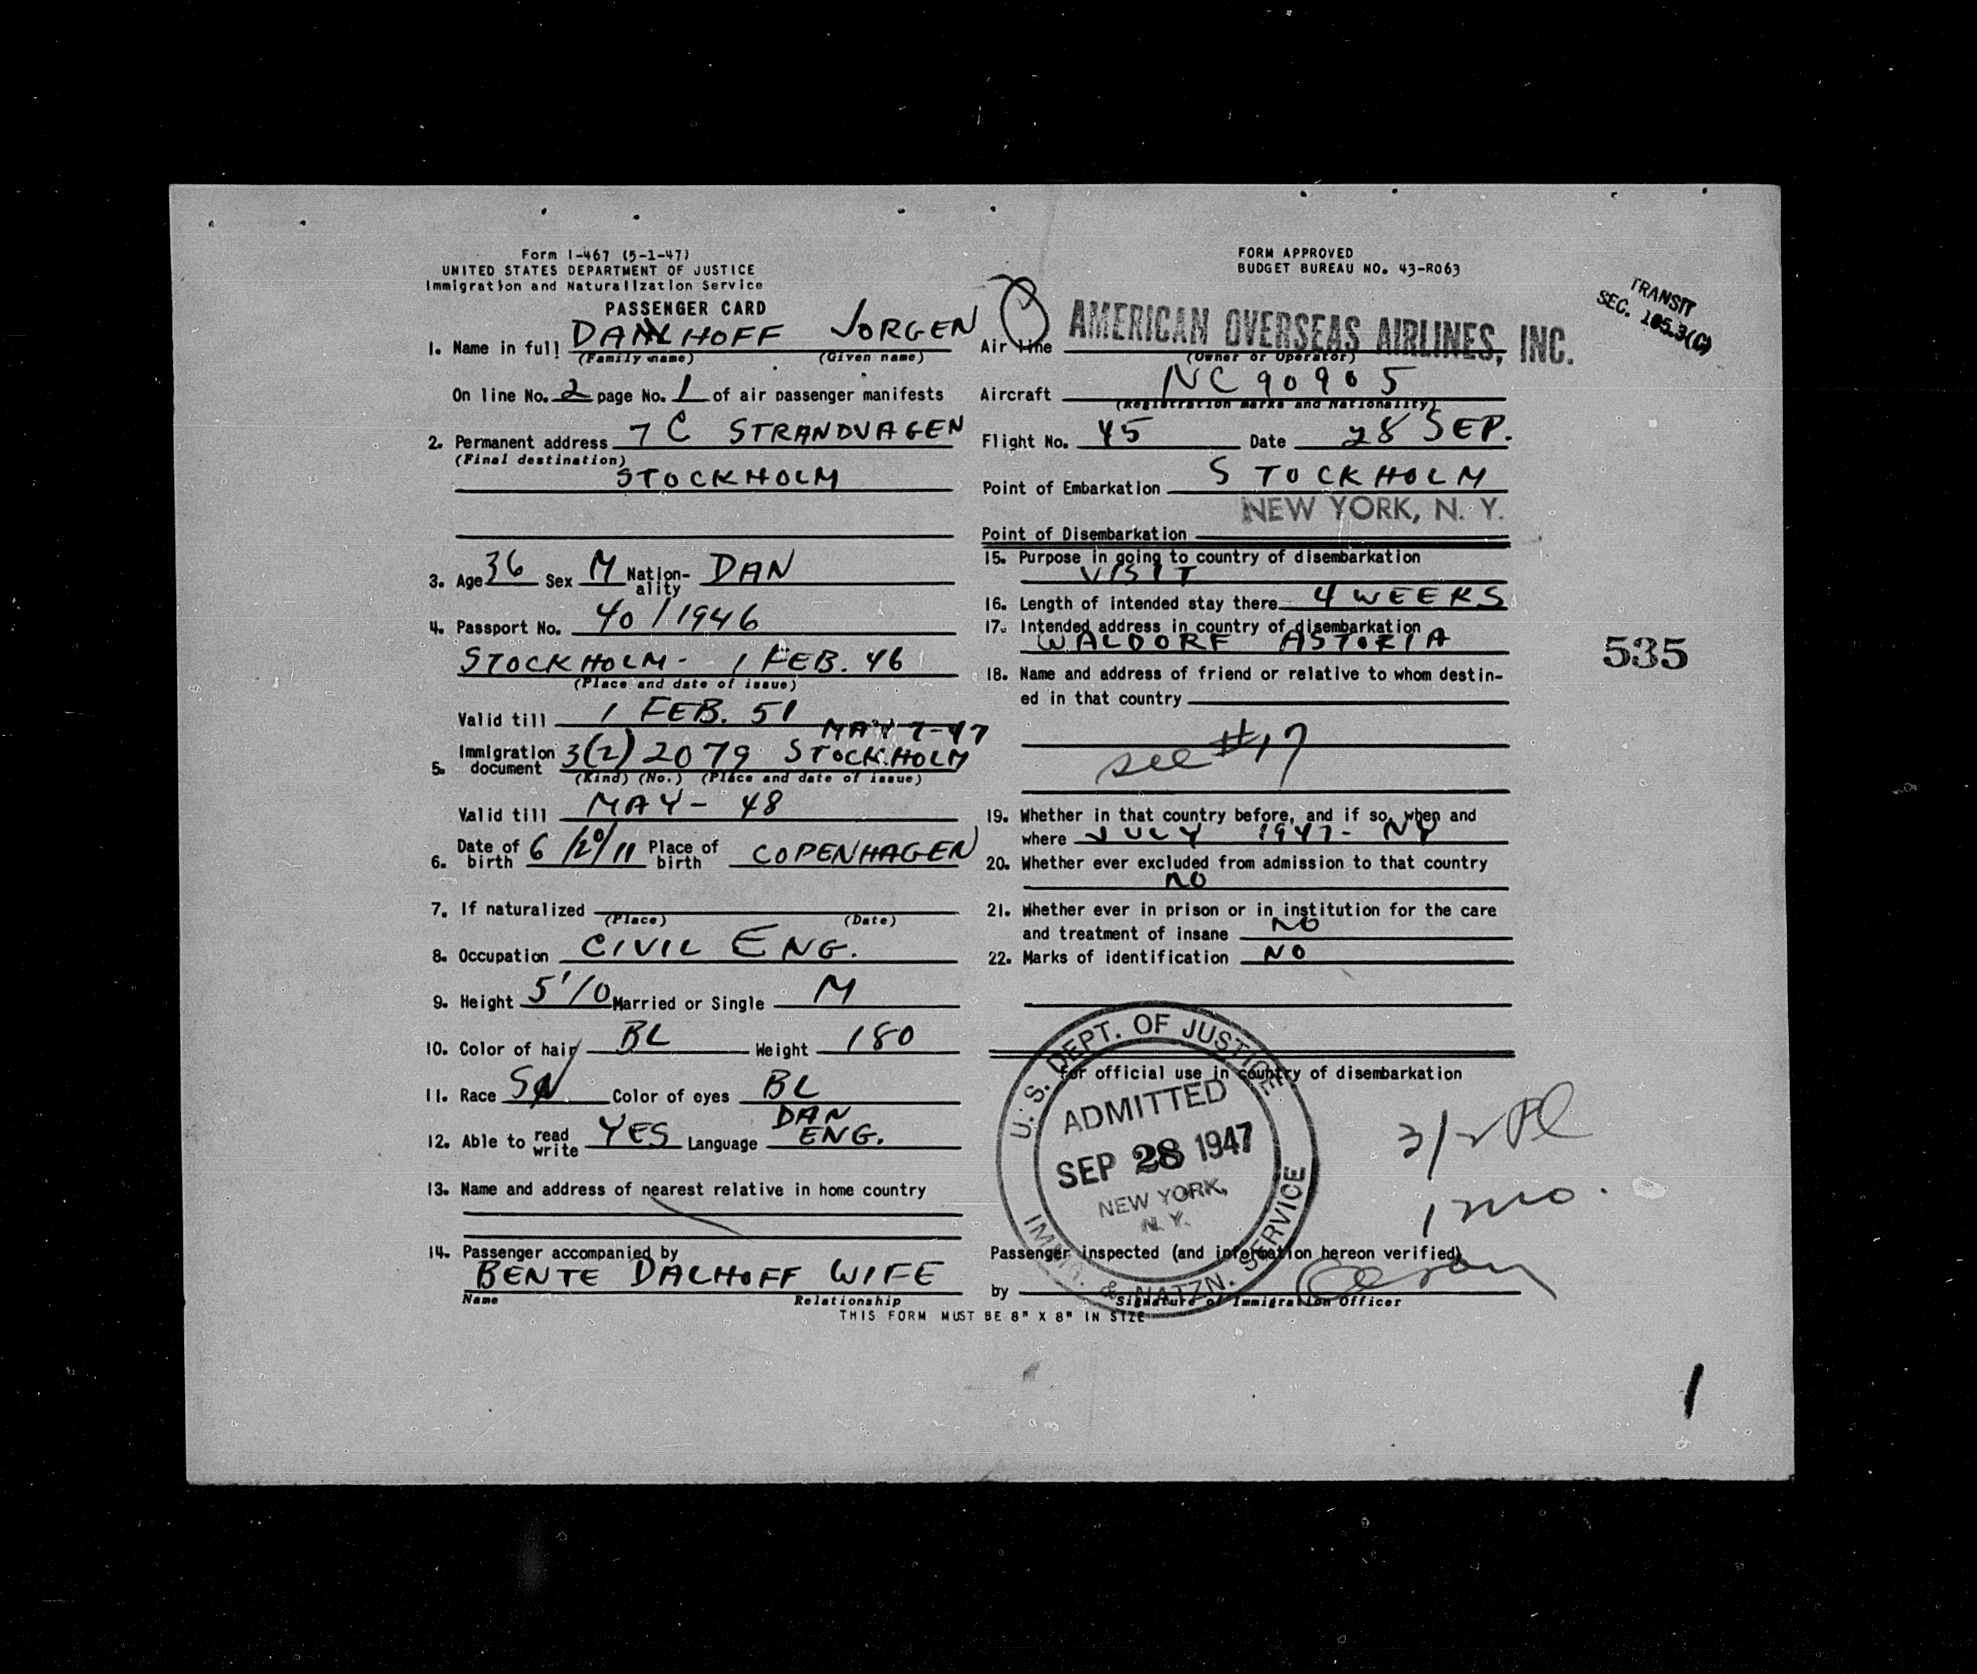 Form I-467 (5-1-47)
UNITED STATES DEPARTMENT OF JUSTICE
Immigration and Naturalization Service
PASSENGER CARD
FORM APPROVED
BUDGET BUREAU NO. 43-R063
TRANSIT
SEC. 105.3(C)
1. Name in full DAHLHOFF JORGEN
(Family name) (Given name)
On line No. 2 page No. 1 of air passenger manifests
2. Permanent address 7 C STRANDVAGEN
(Final destination)
STOCKHOLM
3. Age 36 Sex M Nation-ality DAN
4. Passport No. 40/1946
STOCKHOLM - 1 FEB. 46
(Place and date of issue)
Valid till 1 FEB. 51
MAY 7-47
5. Immigration document 3(2) 2079 STOCKHOLM
(Kind) (No.) (Place and date of issue)
Valid till MAY - 48
6. Date of birth 6/20/11 Place of birth COPENHAGEN
7. If naturalized
(Place) (Date)
8. Occupation CIVIL ENG.
9. Height 5'10 Married or Single M
10. Color of hair BL Weight 180
11. Race SN Color of eyes BL
DAN
12. Able to read write YES Language ENG.
13. Name and address of nearest relative in home country
14. Passenger accompanied by
BENTE DALHOFF WIFE
Name Relationship
Air line AMERICAN OVERSEAS AIRLINES, INC.
(Owner or Operator)
Aircraft NC 90905
(Registration marks and Nationality)
Flight No. 45 Date 28 SEP.
Point of Embarkation STOCKHOLM
NEW YORK, N. Y.
Point of Disembarkation
15. Purpose in going to country of disembarkation
VISIT
16. Length of intended stay there 4 WEEKS
17. Intended address in country of disembarkation
WALDORF ASTORIA
535
18. Name and address of friend or relative to whom destin-
ed in that country
see #17
19. Whether in that country before, and if so, when and
where JULY 1947 - NY
20. Whether ever excluded from admission to that country
NO
21. Whether ever in prison or in institution for the care
and treatment of insane NO
22. Marks of identification NO
for official use in country of disembarkation
U. S. DEPT. OF JUSTICE
ADMITTED
SEP 28 1947
NEW YORK,
N. Y.
IMMN. & NATZN. SERVICE
3/2
1 mo.
Passenger inspected (and information hereon verified)
by
Signature of Immigration Officer
THIS FORM MUST BE 8" X 8" IN SIZE
1